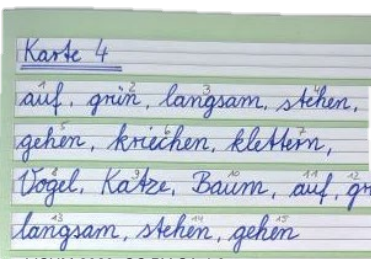 Karte 4
auf, grün, langsam, stehen,
gehen, kriechen, klettern,
Vogel, Katze, Baum, auf, gr
langsam, stehen, gehen